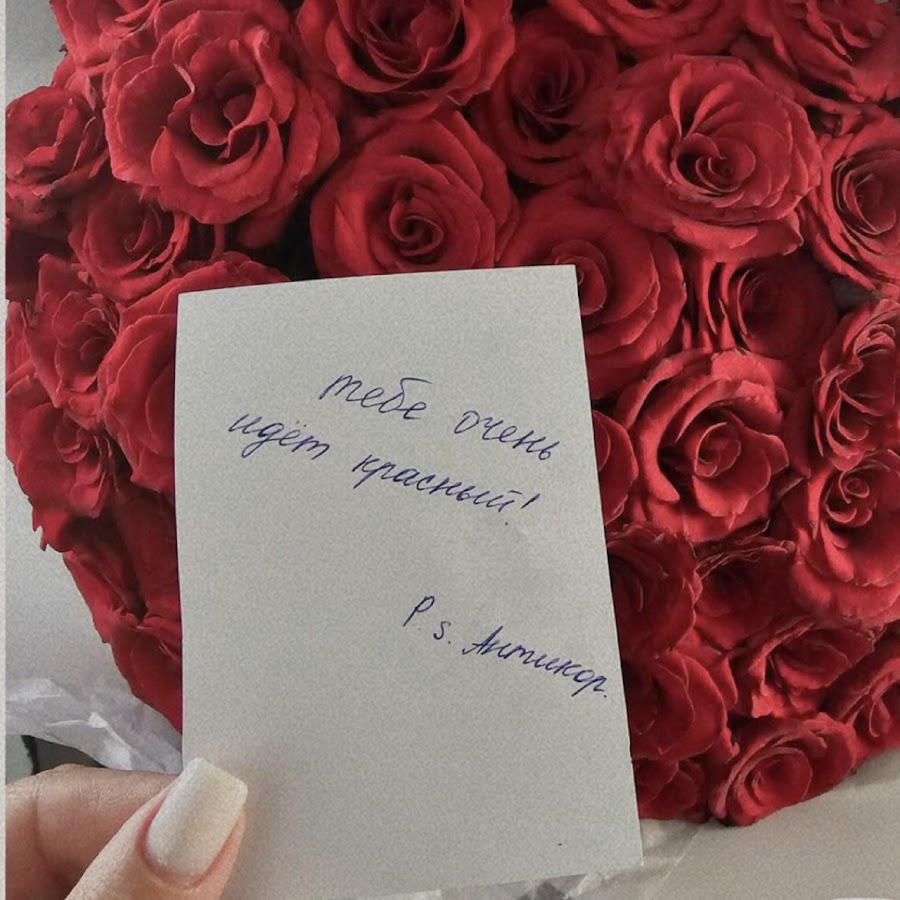 тебе очень
идёт красный!
P.s. Антикор.